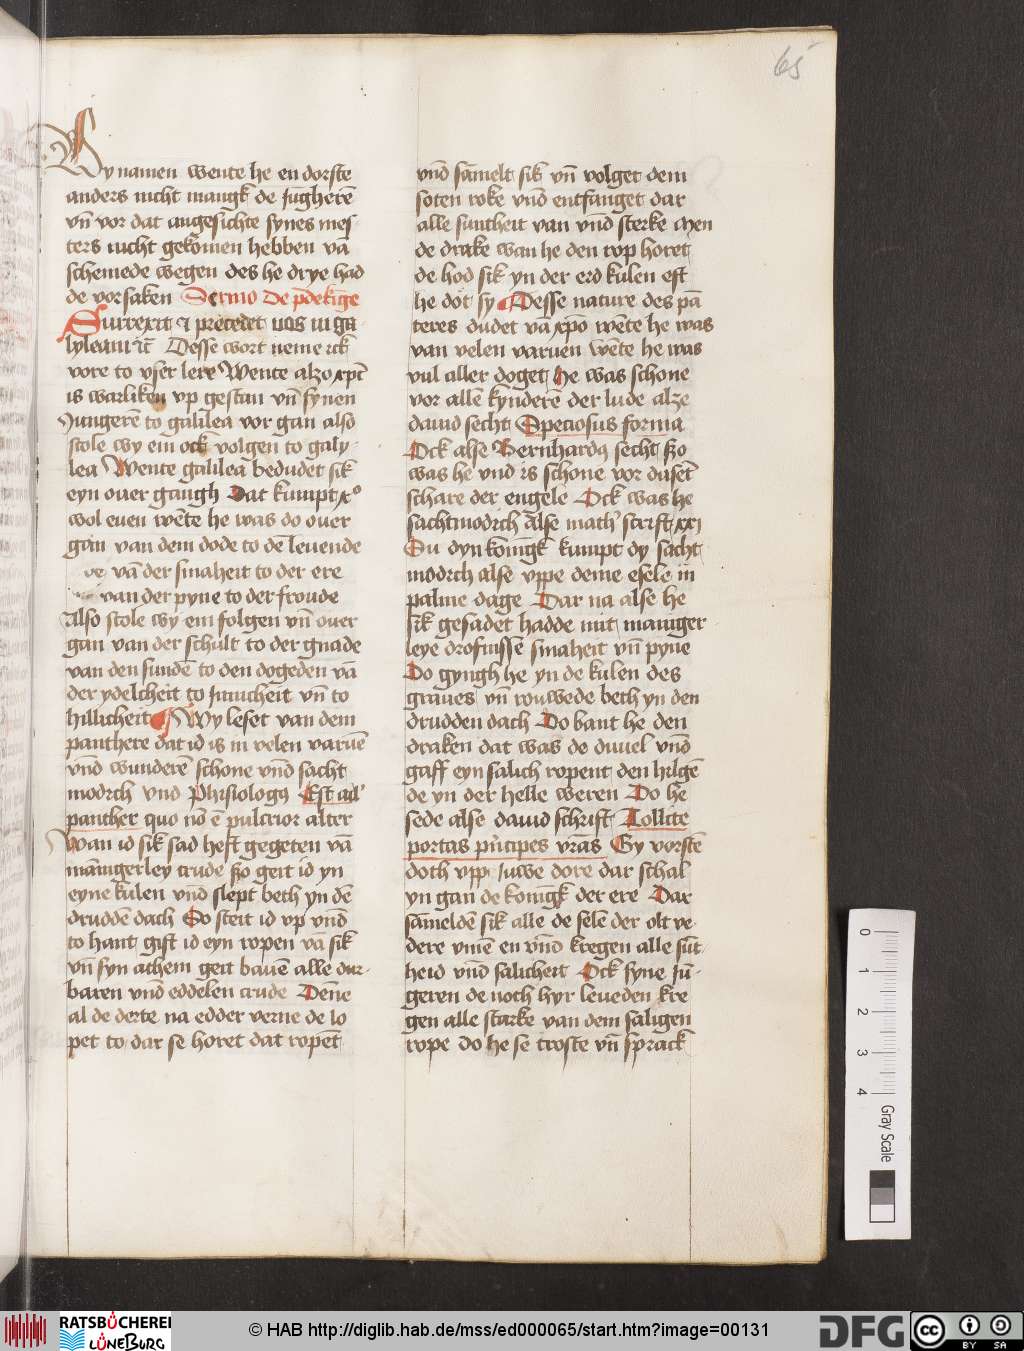 65
By namen wente he en dorste
anders nicht mangk de jūgherē
vn̄ vor dat angesichte synes mes
ters nicht gekomen hebben vā
schemede wegen des he drye had
de vorsaken Sermo De p̄dekīge
Surrexit ⁊ precedet uos in ga
lyleam ic̄ Desse wort neme ick
vore to vser lere Wente alzo xp̄c
is warliken vp gestan vn̄ synen
Jungerē to galilea vor gan also
scole wy em ock volgen to galy
lea Wente galilea bedudet sik
eyn ouer gangh Dat kumpt xo
wol euen wēte he was do ouer
gan van dem dode to dē leuende
ve vā der smaheit to der ere
van der pyne to der froude
Also scole wy em folgen vn̄ ouer
gan van der schult to der gnade
van den sundē to den dogeden vā
der ydelcheit to Innicheit vn̄ to
hillicheit Wy leset van dem
panthere dat id is in velen varuē
vnd wunderē schone vnd sacht
modich vnd Phisiologus Est aīl
panther quo nō ē pulcrior alter
Wan id sik sad heft gegeten vā
mānigerley crude szo geit id yn
eyne kulen vnd slept beth yn dē
druddē dach So steit id vp vnd
to hant gift id eyn ropen vā sik
vn̄ syn athem geit bauē alle dur
baren vnd eddelen crude Denne
al de derte na edder verne de lo
pet to dar se horet dat ropēt
vnd sāmelt sik vn̄ volget dem
soten roke vnd entfanget dar
alle suntheit van vnd sterke Men
de drake wan he den rop horet
de hod sik yn der erd kulen eft
he dot sy Desse nature des pā
teres dudet vā xp̄o wēte he was
van velen varuen wēte he was
vul aller doget he was schone
vor allē kynderē der lude alze
dauid secht Speciosus forma
Ock alse Bernhardus secht szo
was he vnd is schone vor dusēt
schare der engele Ock was he
sachtmodich alse math' scrift xxi
Su dyn konīgk kumpt dy sacht
modich alse vppe deme esele in
palme dage Dar na alse he
sik gesadet hadde mit maniger
leye drofnisse smaheit vn̄ pyne
Do gyngh he yn de kulen des
graues vn̄ rouwede beth yn den
drudden dach Do bant he den
draken dat was de duuel vnd
gaff eyn salich ropent den hilgē
de yn der helle weren Do he
sede alse dauid schrift Tollite
portas prīcipes vr̄as Gy vorstē
doth vpp juwe dore dar schal
yn gan de konīgk der ere Dar
sāmelden sik alle de selē der olt ve
dere vmē en vnd kregen alle sūt
heid vnd salicheit Ock syne jū
geren de noch hyr leueden kre
gen alle starke van dem saligen
rope do he se troste vn̄ sprack
0
1
2
3
4
Gray Scale
RATSBÜCHEREI
LÜNEBURG
© HAB http://diglib.hab.de/mss/ed000065/start.htm?image=00131
DFG
CC BY SA